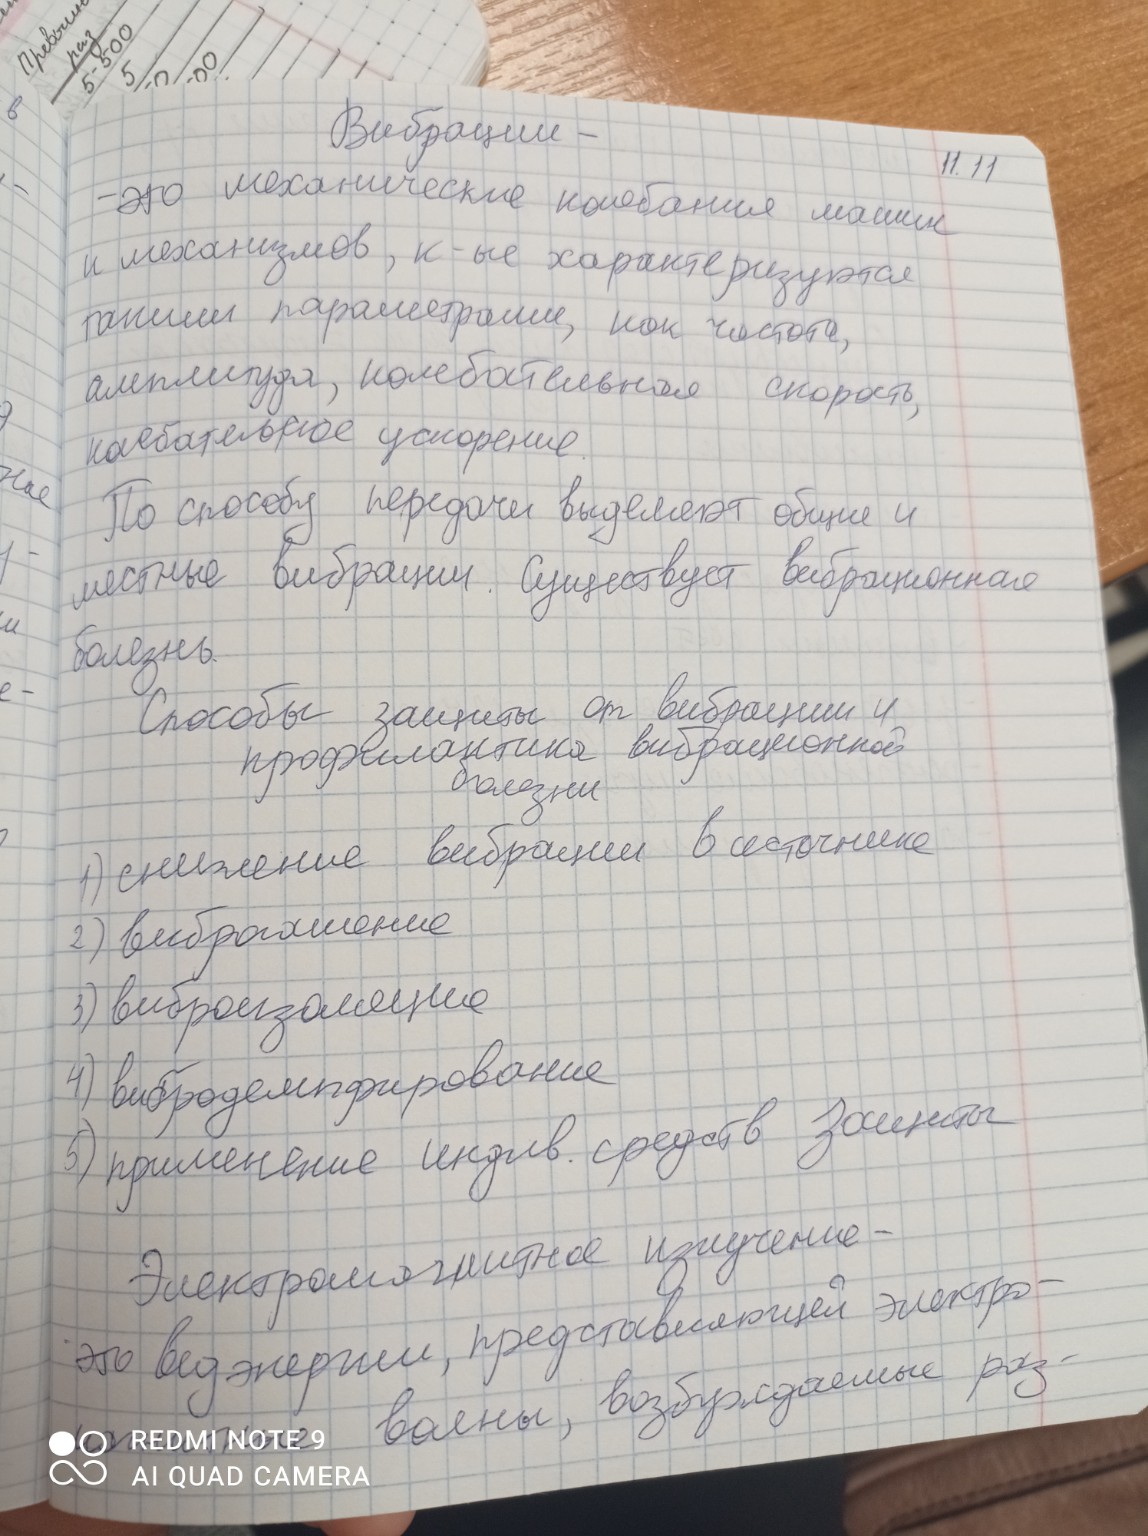 Превыше
раз
5-500
5
Вибрации -
11.11
- это механические колебания машин
и механизмов, к-ые характеризуются
такими параметрами, как частота,
амплитуда, колебательная скорость,
колебательное ускорение.
По способу передачи выделяют общие и
местные вибрации. Существует вибрационная
болезнь.
Способы защиты от вибрации и
профилактика вибрационной
болезни
1) снижение вибрации в источнике
2) виброгашение
3) виброизоляция
4) вибродемпфирование
5) применение индив. средств защиты
Электромагнитное излучение -
это вид энергии, представляющей электро-
магнитные волны, возбуждаемые раз-
REDMI NOTE 9
AI QUAD CAMERA